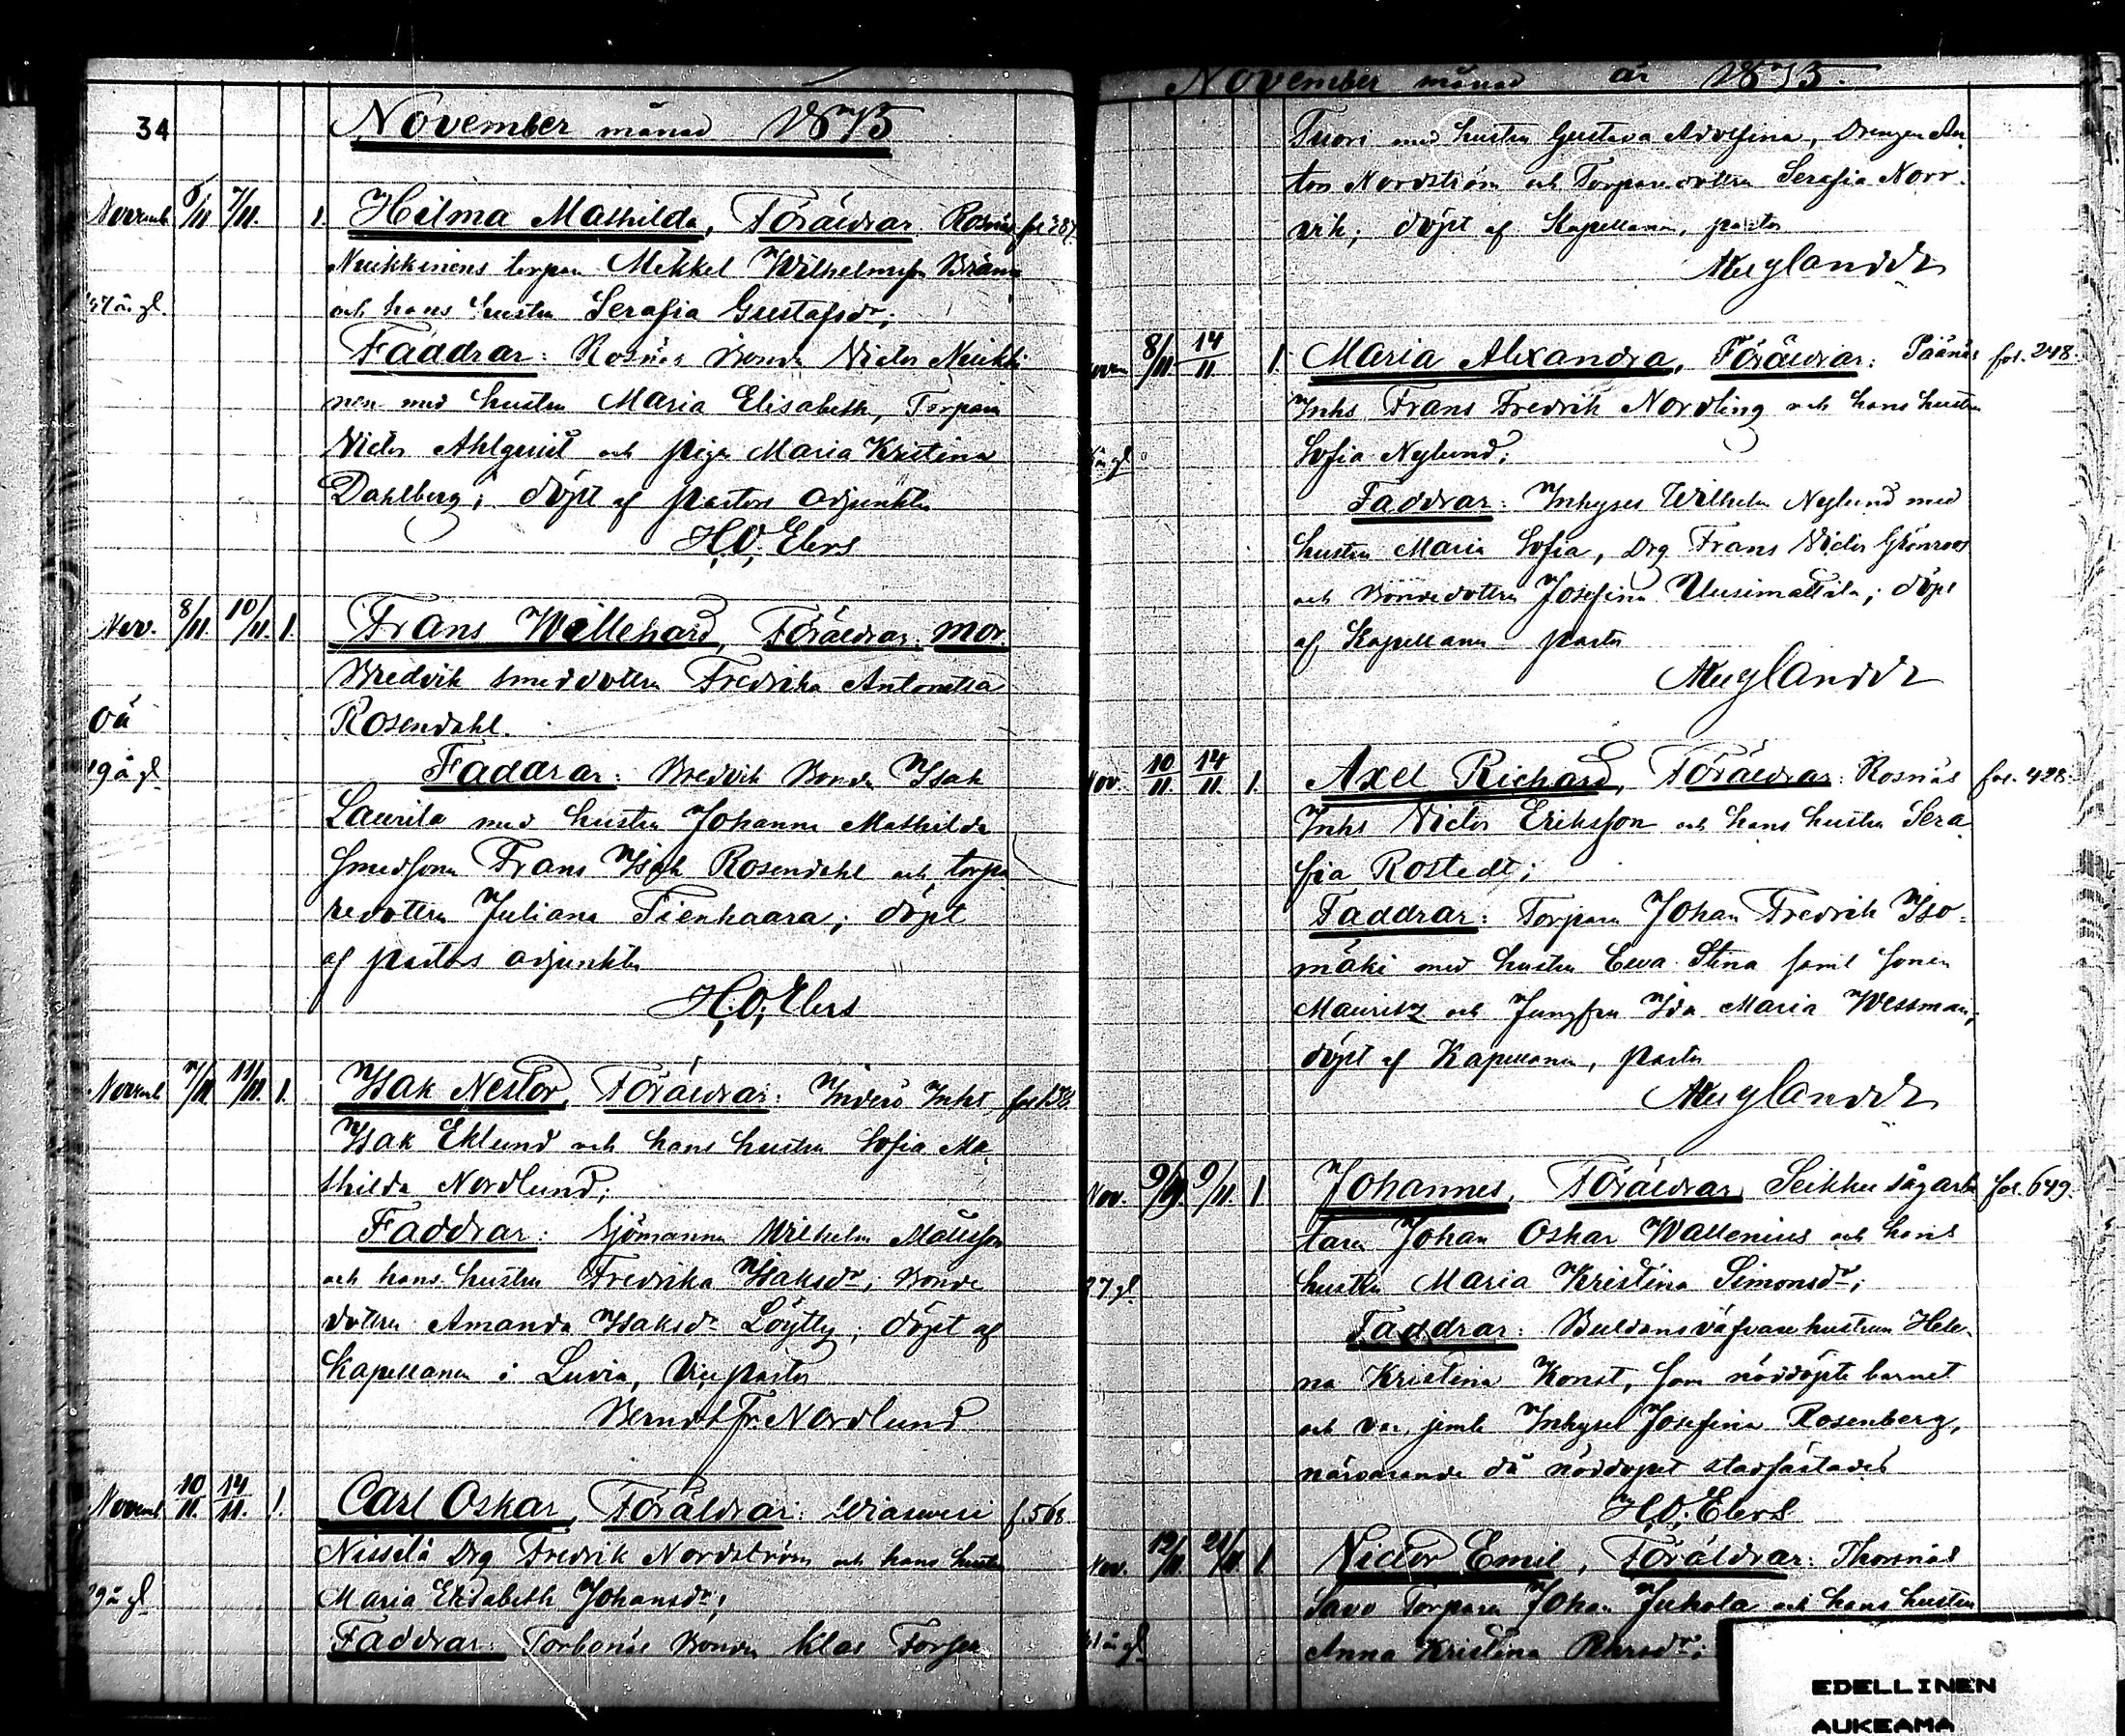 34
November månad 1875
Novemb 5/11 7/11. 1. Hilma Mathilda, Föräldrar Rosnäs fol 287.
Nuikkinens torpare Mikkel Wilhelmsson
47 år gl. och hans hustru Serafia Gustafsdr;
Faddrar: Rosnäs Bonden Victor Nuikki
nen med hustru Maria Elisabeth, Torparen
Victor Ahlquist och pigan Maria Kristina
Dahlberg; döpt af pastors adjunkten
H.O. Elers
Nov. 8/11. 10/11. 1. Frans Willehard, Föräldrar: mor.
Bredvik smeddottren Fredrika Antonetta
oä Rosendahl.
19 å gl Faddrar: Bredvik Bonden Isak
Laurila med hustru Johanna Mathilda
smedsonen Frans Isak Rosendahl och torpa
redottren Juliana Tienhaara; döpt
af pastors adjunkten
H.O. Elers
Novemb 7/11. 11/11. 1. Isak Nestor, Föräldrar: Inderö Inhs fol 138.
Isak Eklund och hans hustru Sofia Ma
thilda Nordlund;
Faddrar: Sjömannen Wilhelm Mattsson
och hans hustru Fredrika Isaksdr, Bonde
dottren Amanda Isaksdr Löytty; döpt af
Kapellanen i Luvia, Vice pastor
Berndt Fr. Nordlund
Novemb 10/11. 14/11. 1. Carl Oskar, Föräldrar: f. 568.
Nissilä Drg Fredrik Nordström och hans hustru
29 å gl Maria Elisabeth Johansdr;
Faddrar: Torbonäs Bonden Klas Forsen
November månad år 1875.
Tuori med hustru Gustava Adolfina, Drengen An
ton Nordström och Torparedottren Serafia Norr
vik; döpt af Kapellanen, pastor
Nylander
8/11 14/11 1. Maria Alexandra, Föräldrar: Päänäs fol. 248.
Inhs Frans Fredrik Nordling och hans hustru
Sofia Nylund;
Faddrar: Inhyses Wilhelm Nylund med
hustru Maria Sofia, Drg Frans Victor Grönroos
och Bondedottren Josefina Uusimattila; döpt
af Kapellanen pastor
Nylander
Nov. 10/11. 14/11. 1. Axel Richard, Föräldrar: Rosnäs fol. 428.
Inhs Victor Eriksson och hans hustru Sera
fia Rostedt;
Faddrar: Torparen Johan Fredrik Iso-
mäki med hustru Eva Stina samt sonen
Mauritz och Jungfru Ida Maria Wessman;
döpt af Kapellanen, pastor
Nylander
Nov. 9/11. 9/11. 1 Johannes, Föräldrar, Seikku sågarbe fol. 649.
taren Johan Oskar Wallenius och hans
27 gl. hustru Maria Kristina Simonsdr;
Faddrar: Buldansväfvare hustrun Hele-
na Kristina Konst, som nöddöpte barnet
och var, jemte Inhyses Josefina Rosenberg,
närvarande då nöddopet stadfästades
H.O. Elers
Nov. 12/11. 21/11. 1 Victor Emil, Föräldrar: Thorsnäs
Savo Torparen Johan Juhola och hans hustru
31 år gl Anna Kristina
EDELLINEN
AUKEAMA